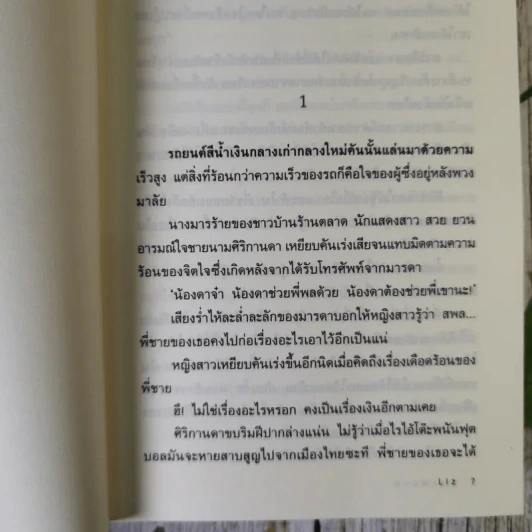 1
รถยนต์สีน้ำเงินกลางเก่ากลางใหม่คันนั้นแล่นมาด้วยความ
เร็วสูง แต่สิ่งที่ร้อนกว่าความเร็วของรถก็คือใจของผู้ซึ่งอยู่หลังพวง
มาลัย
นางมารร้ายของชาวบ้านร้านตลาด นักแสดงสาว สวย ยวน
อารมณ์ใจชายนามศิริกานดา เหยียบคันเร่งเสียจนแทบมิดตามความ
ร้อนของจิตใจซึ่งเกิดหลังจากได้รับโทรศัพท์จากมารดา
'น้องดาจ๋า น้องดาช่วยพี่พลด้วย น้องดาต้องช่วยพี่เขานะ!'
เสียงร่ำไห้ละล่ำละลักของมารดาบอกให้หญิงสาวรู้ว่า สพล...
พี่ชายของเธอคงไปก่อเรื่องอะไรเอาไว้อีกเป็นแน่
หญิงสาวเหยียบคันเร่งขึ้นอีกนิดเมื่อคิดถึงเรื่องเดือดร้อนของ
พี่ชาย
ฮึ! ไม่ใช่เรื่องอะไรหรอก คงเป็นเรื่องเงินอีกตามเคย
ศิริกานดาขบริมฝีปากล่างแน่น ไม่รู้ว่าเมื่อไรไอ้โต๊ะพนันฟุต
บอลมันจะหายสาบสูญไปจากเมืองไทยซะที พี่ชายของเธอจะได้
Liz 7